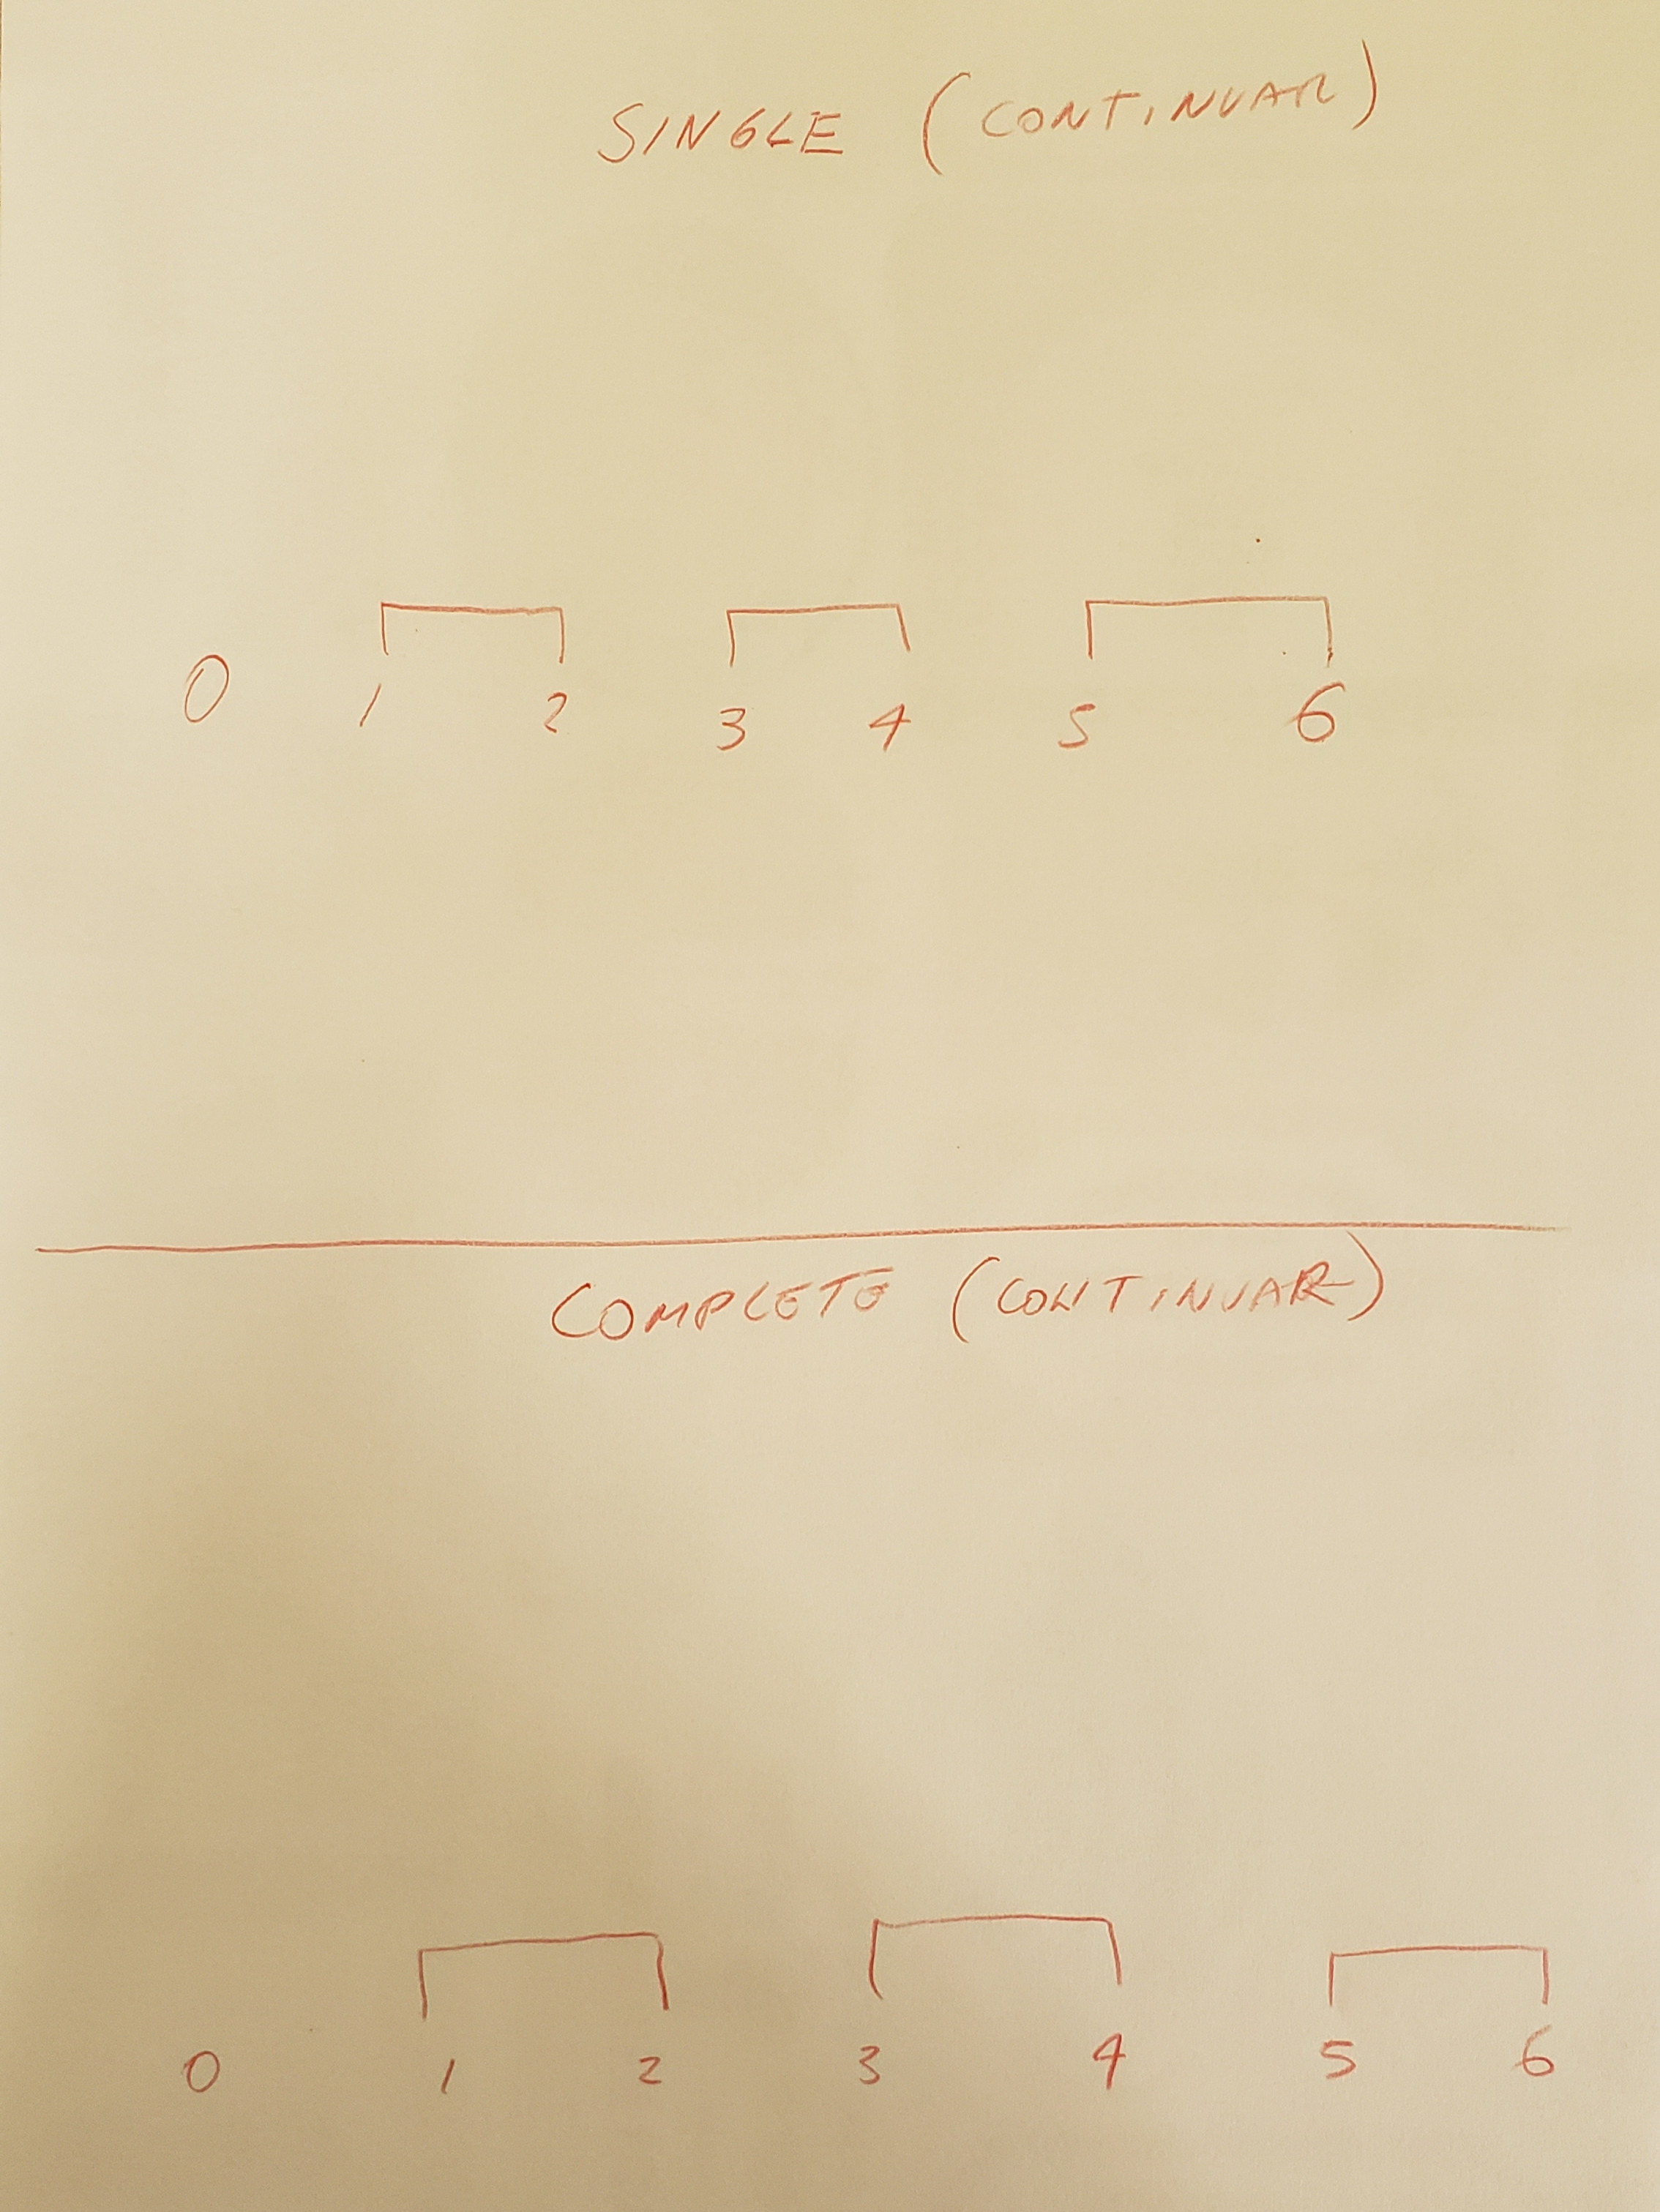 SINGLE (CONTINUAR)
0 1 2 3 4 5 6
COMPLETE (CONTINUAR)
0 1 2 3 4 5 6